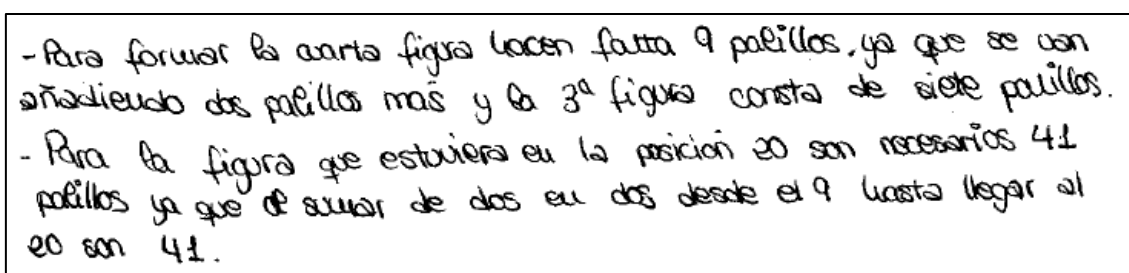 - Para formar la cuarta figura hacen falta 9 palillos, ya que se van
añadiendo dos palillos más y la 3ª figura consta de siete palillos.
- Para la figura que estuviera en la posición 20 son necesarios 41
palillos ya que al sumar de dos en dos desde el 9 hasta llegar al
20 son 41.